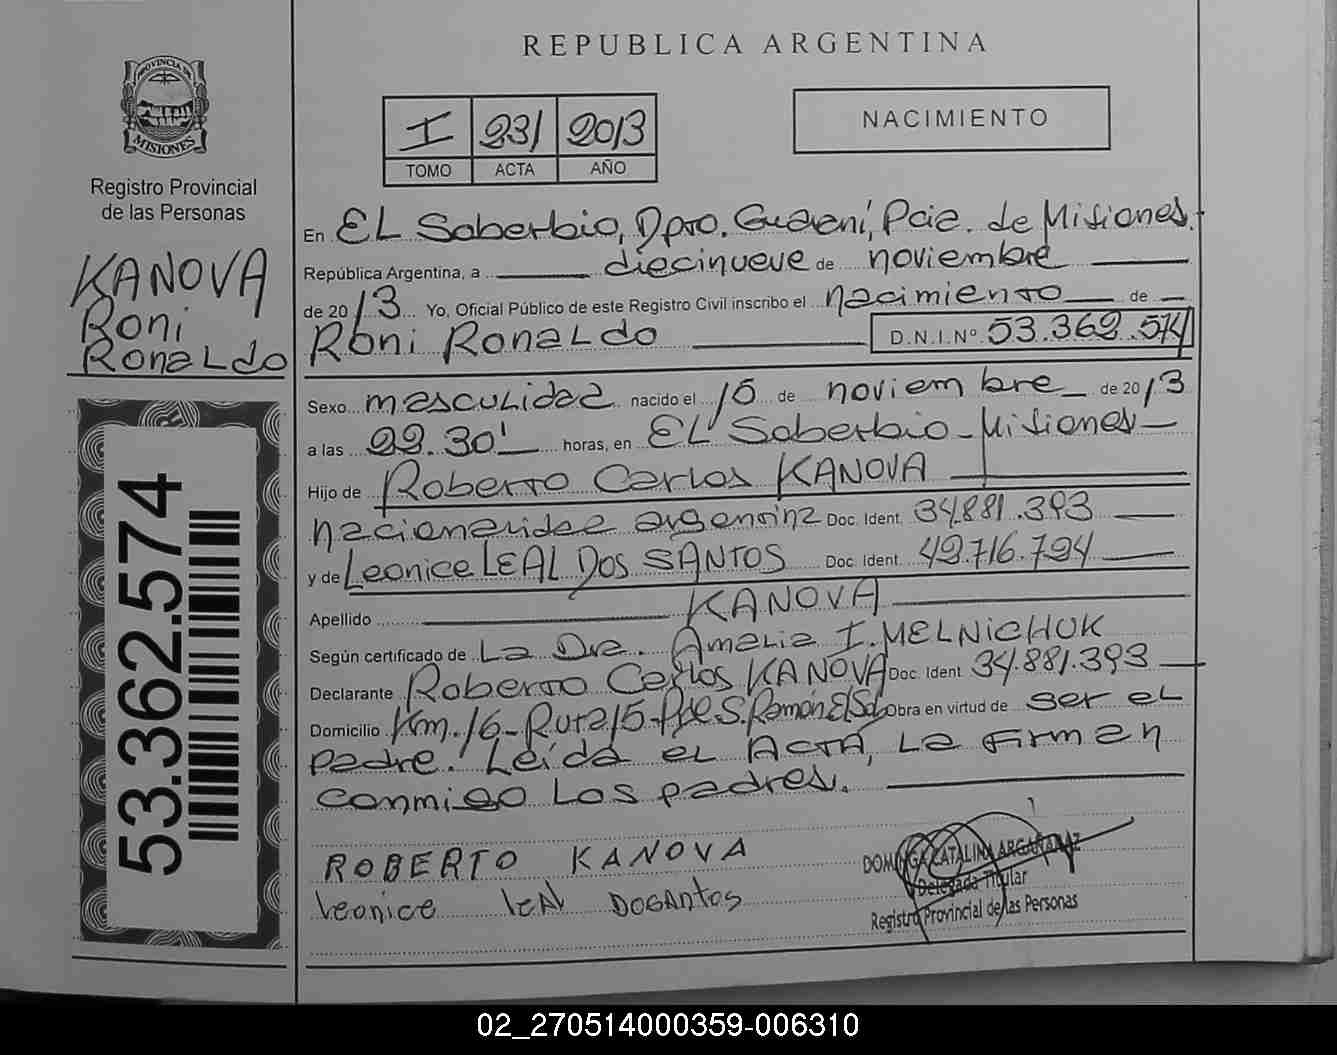 REPUBLICA ARGENTINA
PROVINCIA DE
MISIONES
Registro Provincial
de las Personas
KANOVA
Roni
Ronaldo
53.362.574
I 231 2013
TOMO ACTA AÑO
NACIMIENTO
En El Soberbio, Dpto. Guaraní, Pcia. de Misiones.
República Argentina, a diecinueve de noviembre
de 2013 Yo, Oficial Público de este Registro Civil inscribo el nacimiento de
Roni Ronaldo D.N.I.Nº 53.362.574
Sexo masculidad nacido el 16 de noviembre de 2013
a las 22.30' horas, en El Soberbio - Misiones
Hijo de Roberto Carlos KANOVA
nacionalidad argentina Doc. Ident. 34.881.393
y de Leonice LEAL DOS SANTOS Doc. Ident. 49.716.794
Apellido KANOVA
Según certificado de La Dra. Amalia I. MELNICHUK
Declarante Roberto Carlos KANOVA Doc. Ident 34.881.393
Domicilio Km. 16 - Ruta 15 - Pje S. Ramón El Sob. Obra en virtud de ser el
padre. Leída el ACTA, la firman
conmigo los padres.
ROBERTO KANOVA
Leonice leAl DOSAntos
DOMINGA CATALINA ARGAÑARAZ
Delegada Titular
Registro Provincial de las Personas
02_270514000359-006310